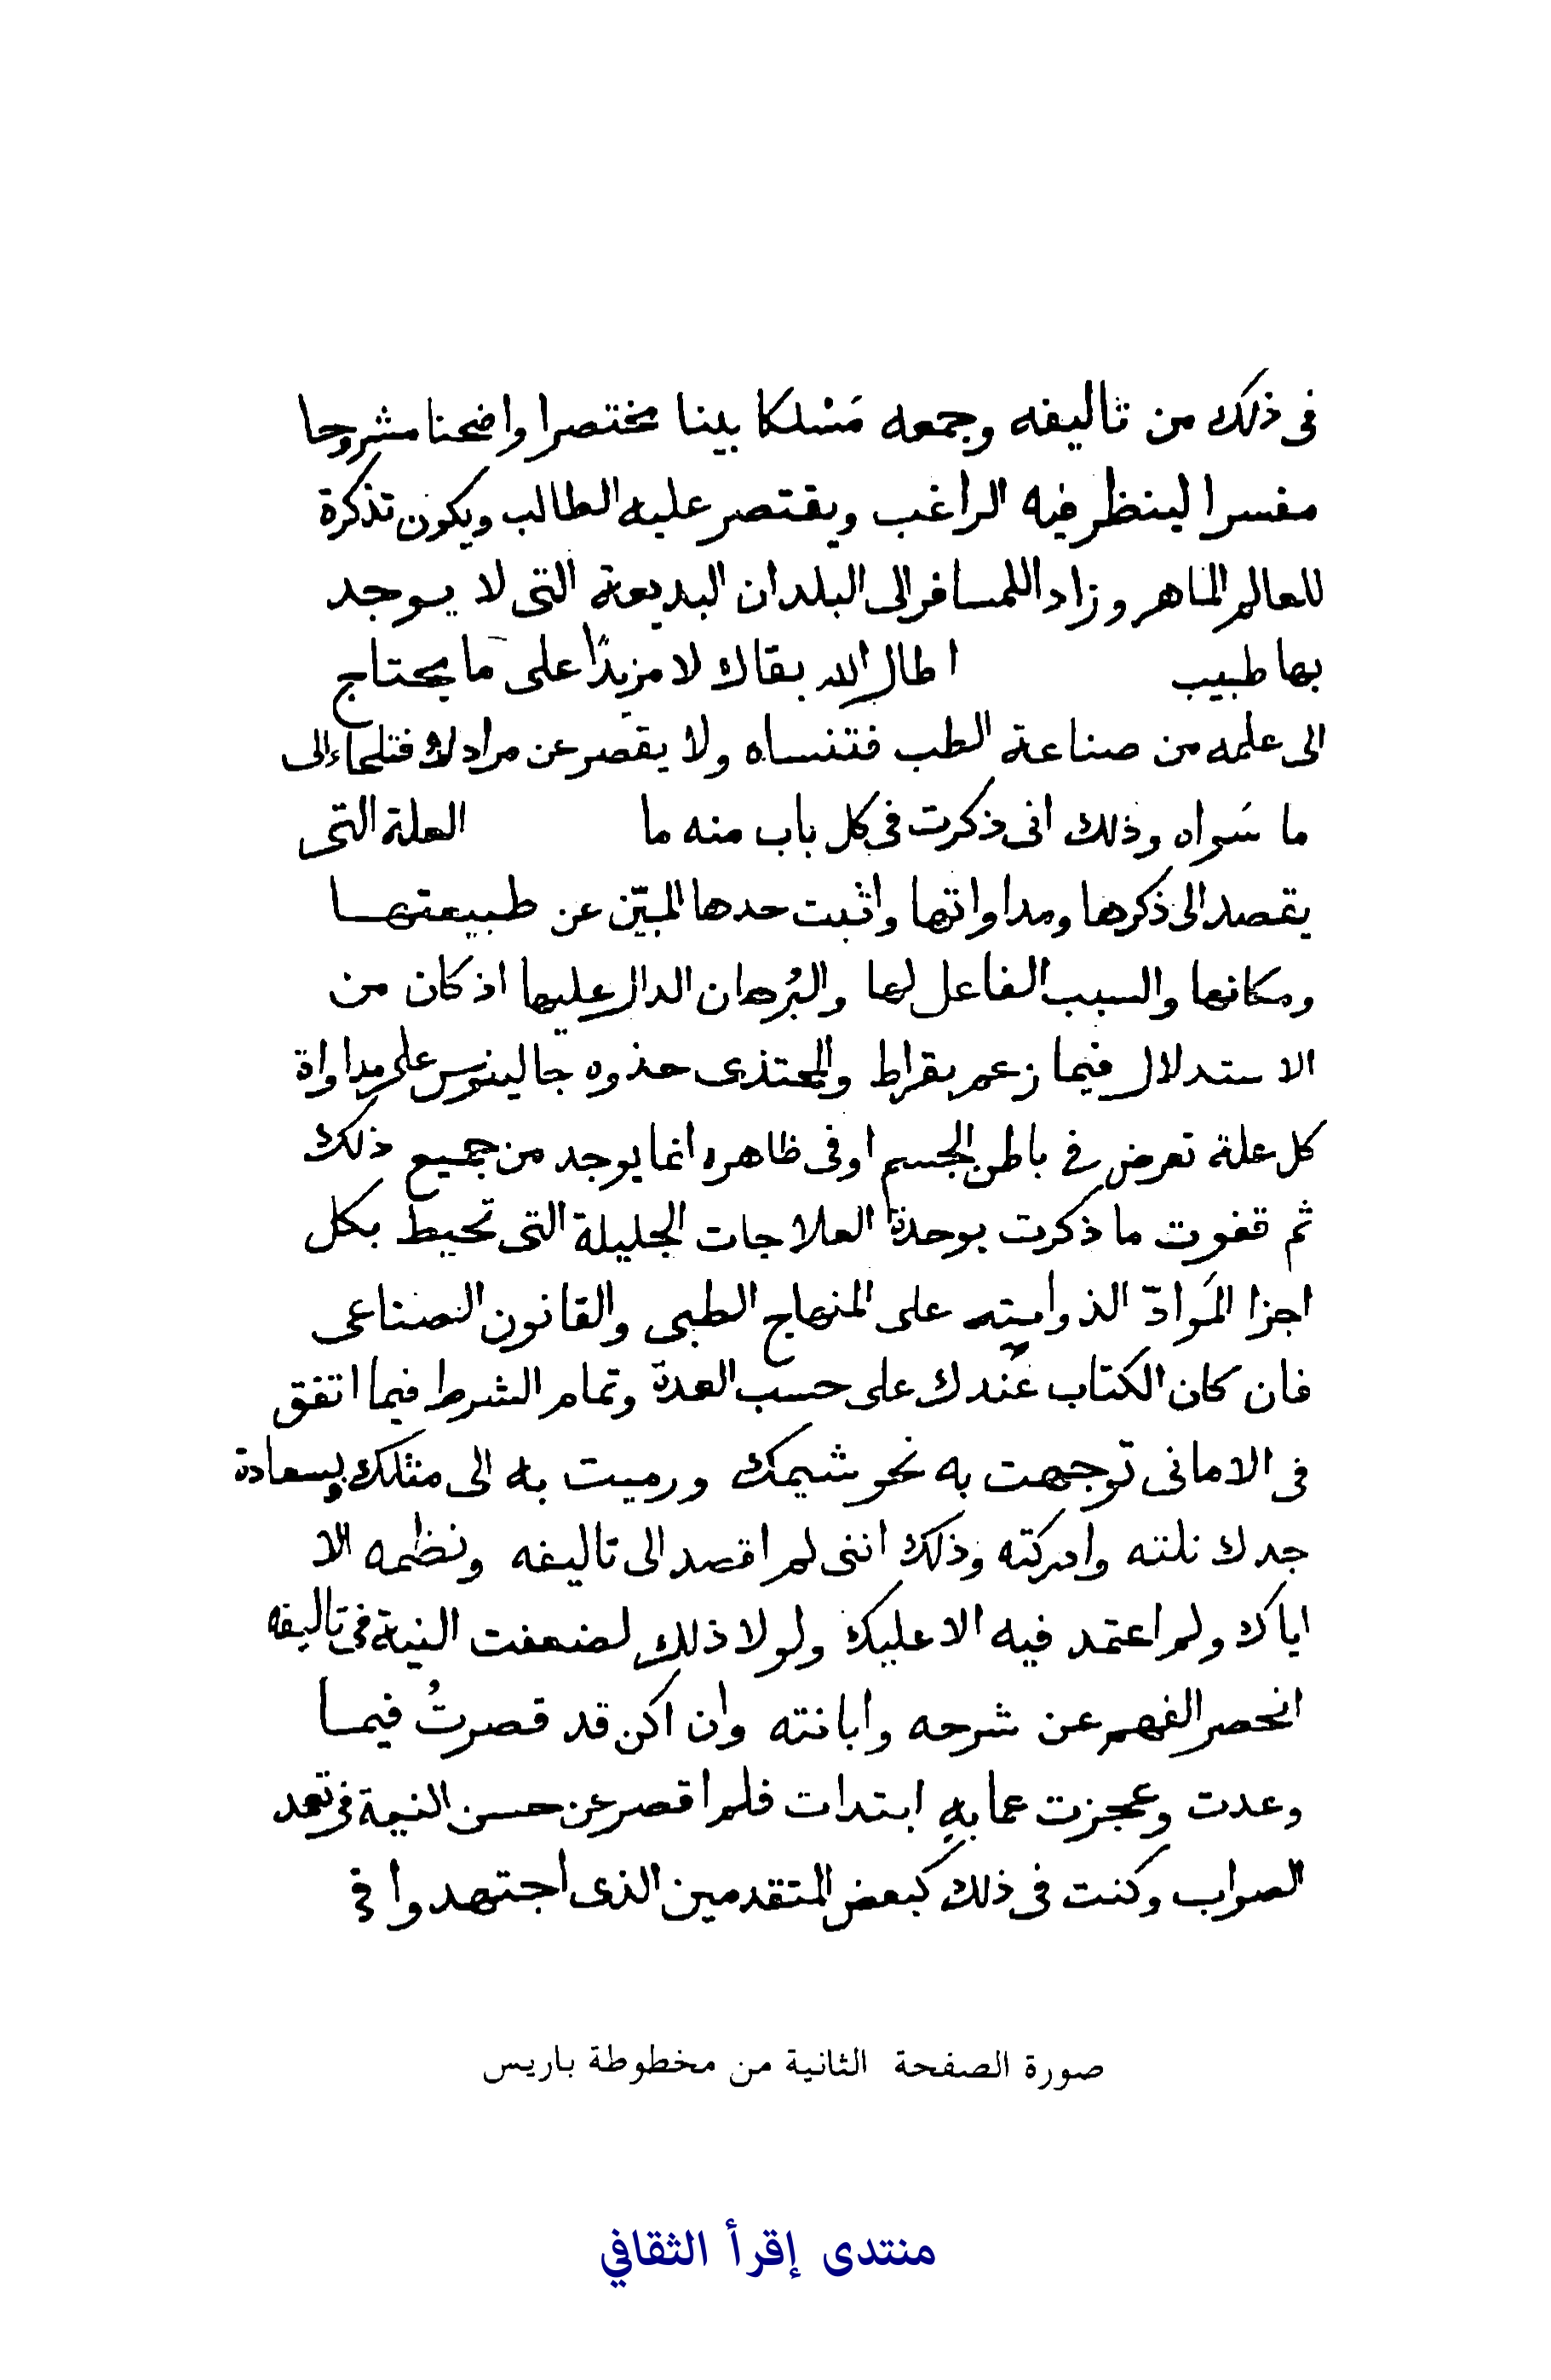 فى ذلك من تاليفه وجمعه مَسْلكا بينا مختصرا واضحا مشروحا
مفسرا لينظر فيه الراغب ويقتصر عليه الطالب ويكون تذكرة
للعالم الماهر وزادا للمسافر الى البلدان البديعة التى لا يوجد
بها طبيب اطال الله بقاك لا مزيدًا على ما يحتاج
الى علمه من صناعة الطب فتنساه ولا يقصر عن مرادك فتلجاء الى
ما سَواه وذلك انى ذكرت فى كل باب منه ما العلة التى
يقصد الى ذكرها ومداواتها واثبت حدها المبيّن عن طبيعتها
ومكانها والسبب الفاعل لها والبُرهان الدال عليها اذ كان من
الاستدلال فيما زعم بقراط والمحتذى حذوه جالينوس على مداواة
كل علة تعرض في باطن الجسم او فى ظاهره انما يوجد من جميع ذلك
ثم قفوت ما ذكرت بوحدة العلاجات الجليلة التى تحيط بكل
اجزا المَوادّ على المنهاج الطبى والقانون الصناعى
فان كان الكتاب عندك على حسب العدة وتمام الشرط فيما اتفق
فى الامانى توجهت به نحو شيمك ورميت به الى مثلك وبسعادة
جدك نلته وادركته وذلك اننى لم اقصد الى تاليفه ونظمه الا
اياك ولم اعتمد فيه الا عليك ولولا ذلك لضعفت النية فى تاليفه
انحصر الفهم عن شرحه وابانته وان اكن قد قصرتُ فيما
وعدت وعجزت عما بهِ ابتدات فلم اقصر عن حسن النية فى تعمد
الصواب وكنت فى ذلك كبعض المتقدمين الذى اجتهدوا في
صورة الصفحة الثانية من مخطوطة باريس
منتدى إقرأ الثقافي